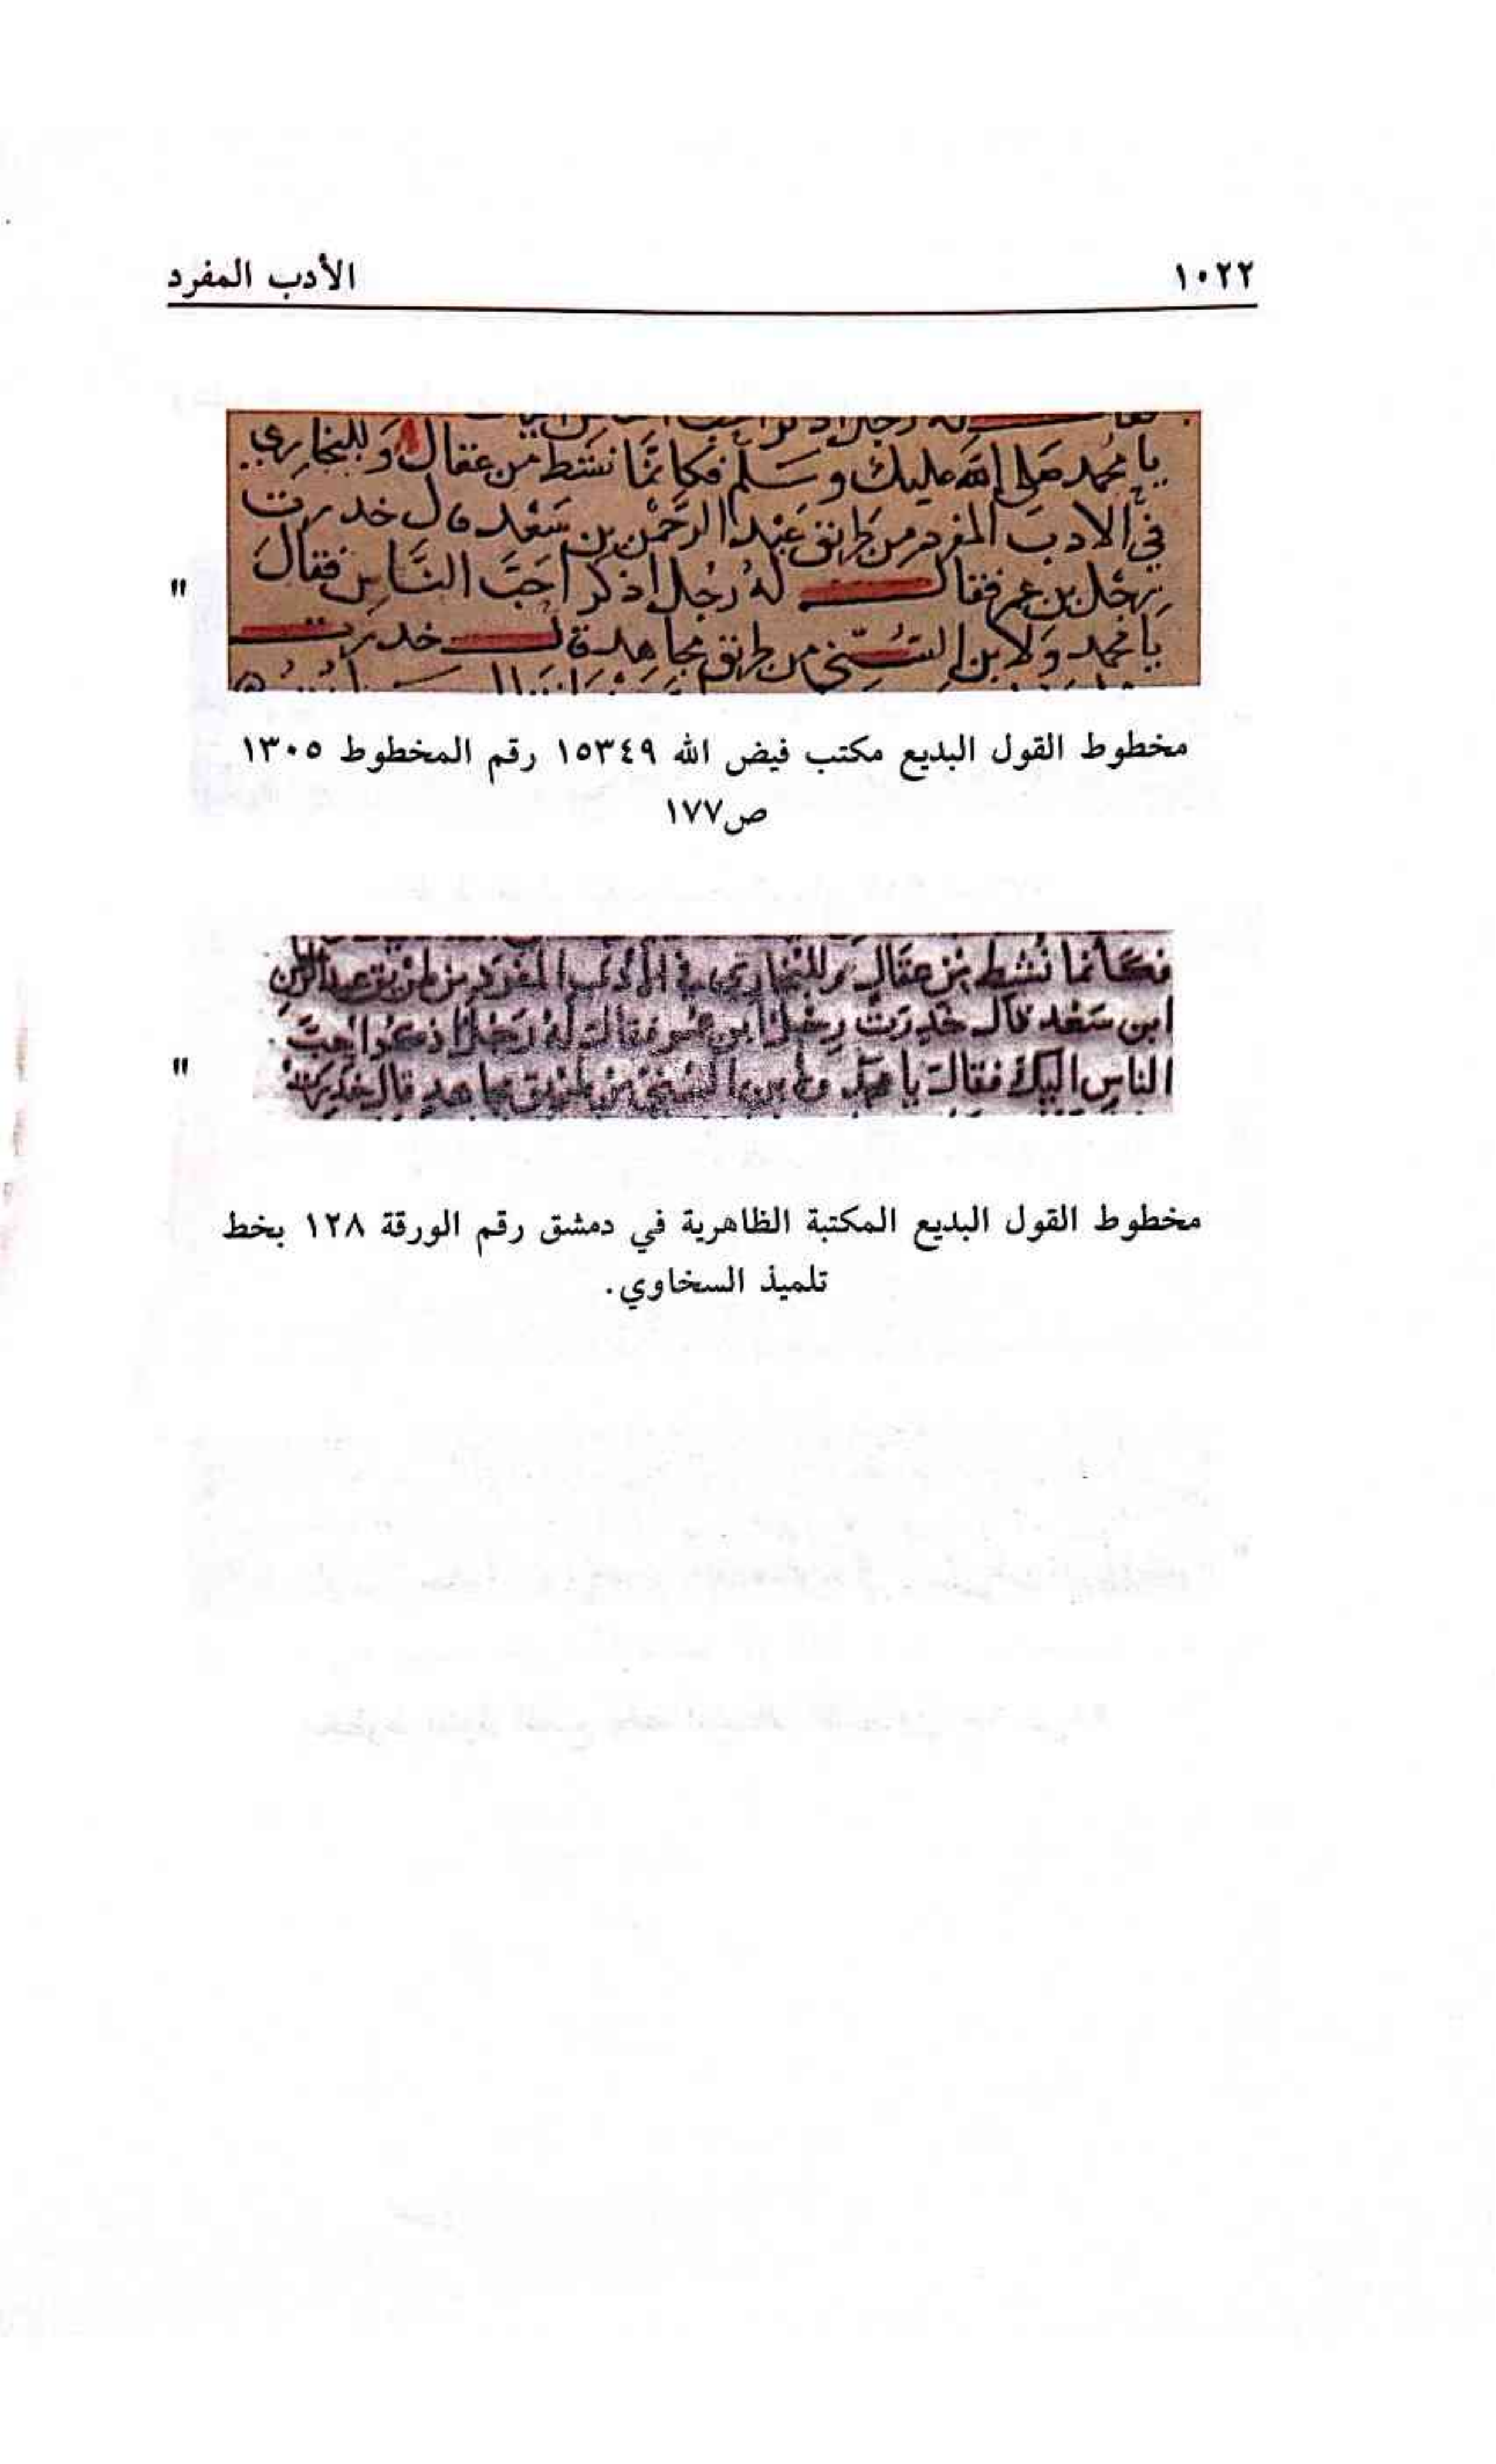 ١٠٢٢ الأدب المفرد
يا محمد صلى الله عليك وسلم فكانما نشط من عقال وللبخاري
في الادب المفرد من طريق عبد الرحمن بن سعد قال خدرت
رجل بن عمر فقال له رجل اذكر احب الناس فقال
يا محمد ولابن السني من طريق مجاهد قال خدرت
"
مخطوط القول البديع مكتب فيض الله ١٥٣٤٩ رقم المخطوط ١٣٠٥
ص١٧٧
فكانما نشط من عقال وللبخاري في الادب المفرد من طريق عبد الرحمن
ابن سعد قال خدرت رجل ابن عمر فقال له رجل اذكر احب
الناس اليك فقال يا محمد ولابن السني من طريق مجاهد قال خدرت
"
مخطوط القول البديع المكتبة الظاهرية في دمشق رقم الورقة ١٢٨ بخط
تلميذ السخاوي.